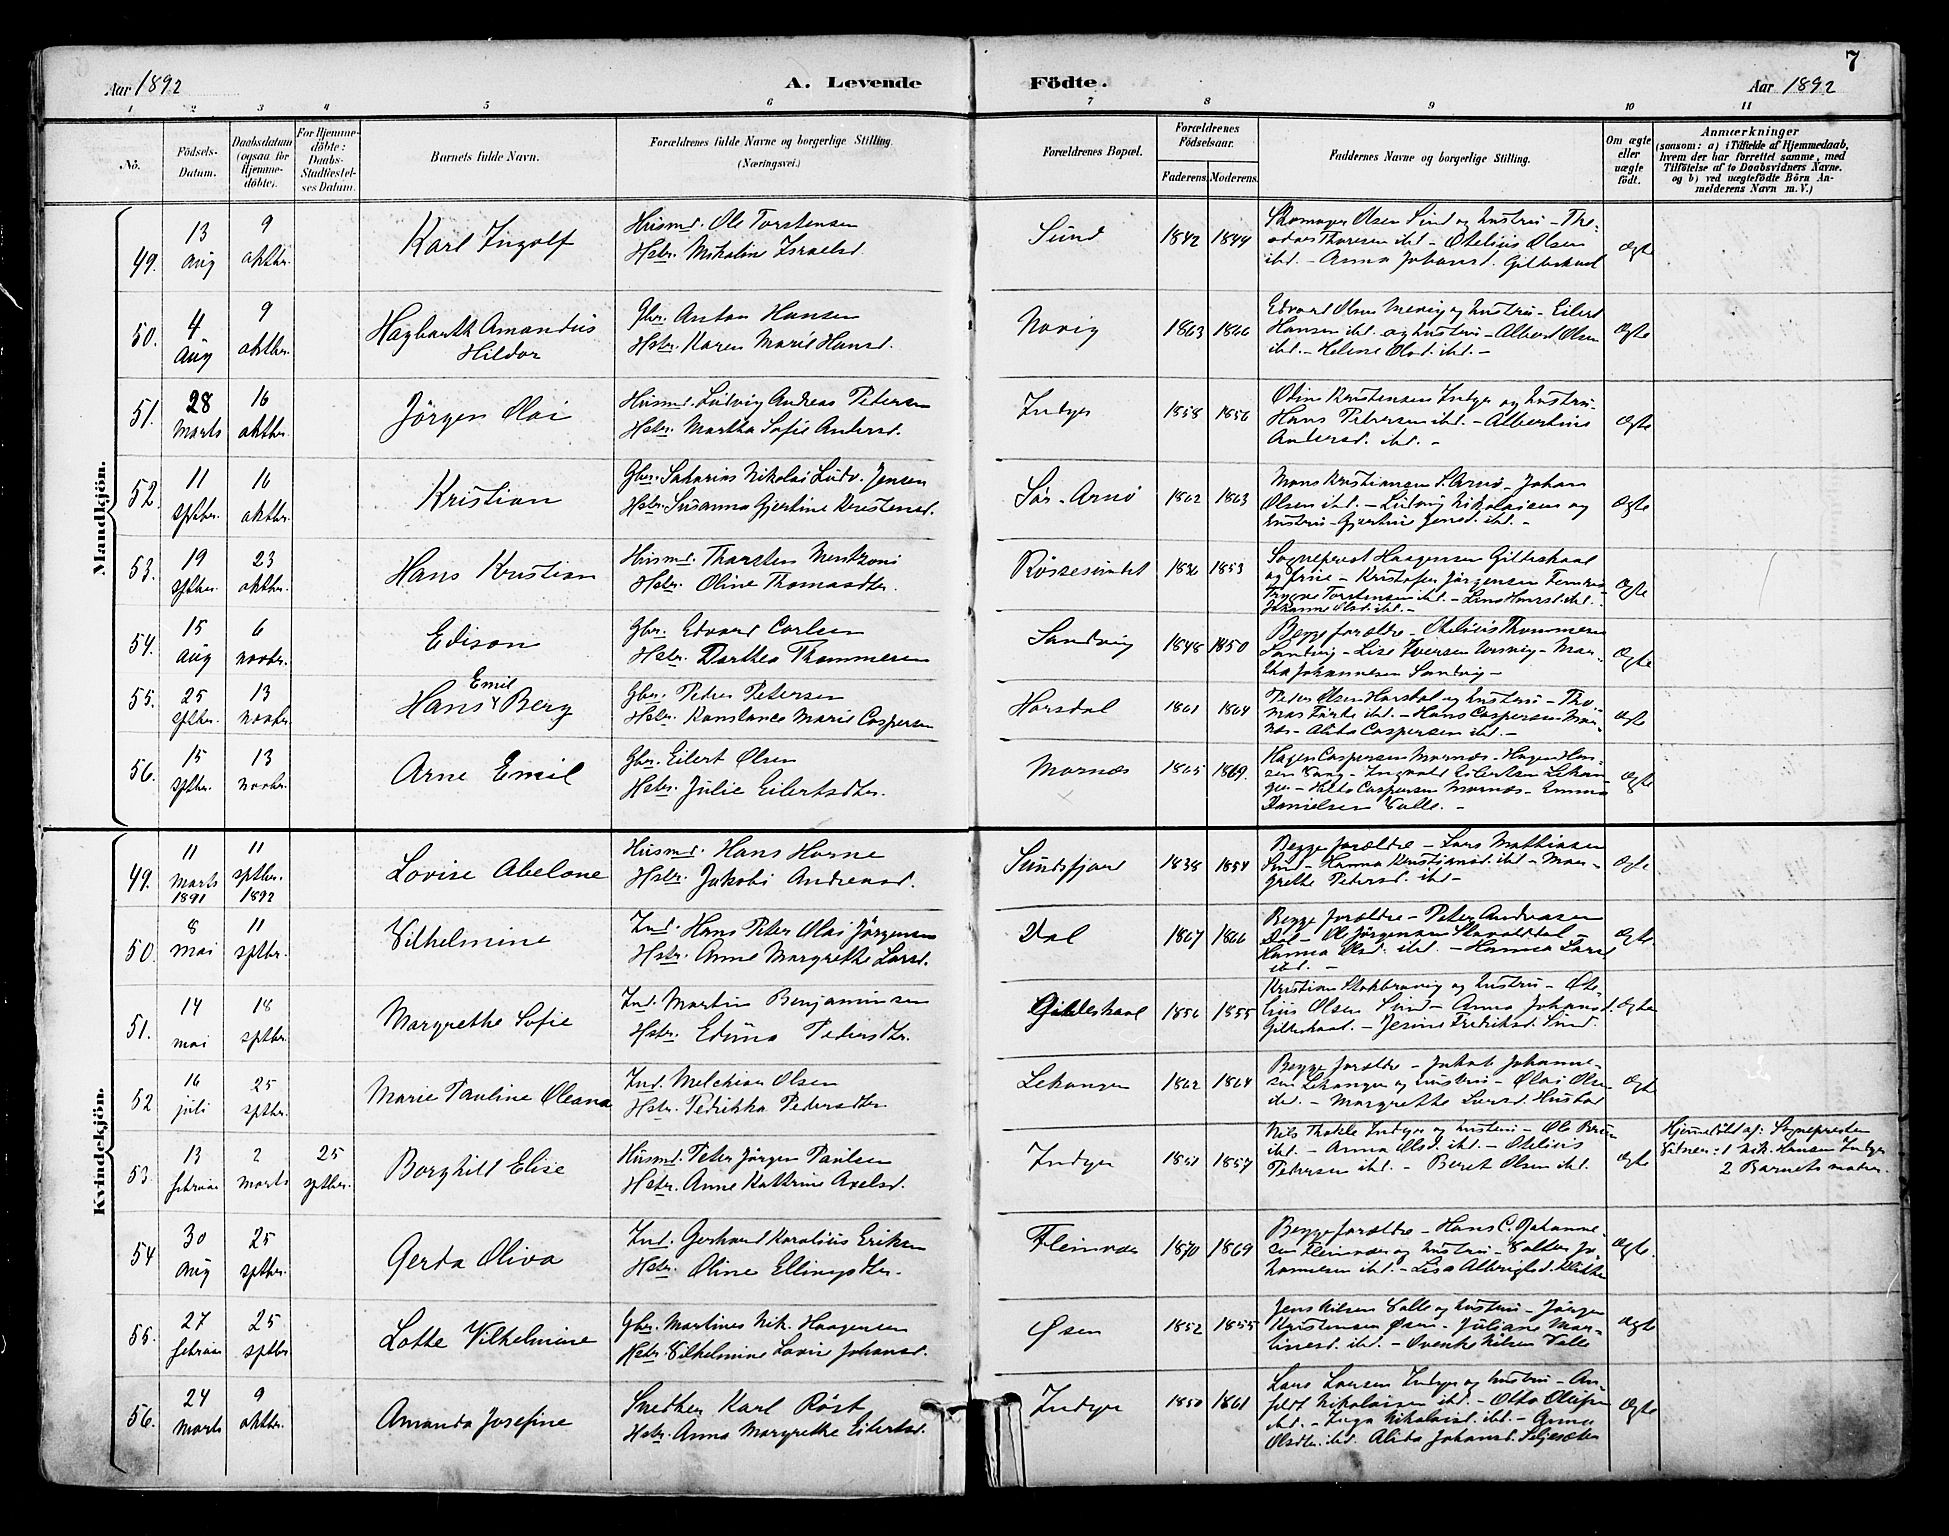 7
Aar 1892 A. Levende Födte. Aar 1892
1 2 3 4 5 6 7 8 9 10 11
No.
Födsels-
Datum.
Daabsdatum
(ogsaa for
Hjemme-
döbte).
For Hjemme-
döbte:
Daabs-
Stadfæstel-
ses Datum.
Barnets fulde Navn.
Forældrenes fulde Navne og borgerlige Stilling.
(Næringsvei.)
Forældrenes Bopæl.
Forældrenes
Födselsaar.
Faderens. Moderens.
Faddernes Navne og borgerlige Stilling.
Om ægte
eller
uægte
födt.
Anmærkninger
(saasom: a) i Tilfælde af Hjemmedaab,
hvem der har forrettet samme, med
Tilföielse af to Daabsvidners Navne.
og b) ved uægtefödte Börn An-
melderens Navn m. V.)
Mandkjön.
49. 13 Aug 9 oktbr. Karl Ingolf
Husmd. Ole Torstensen
Hstr. Mikaline Israelsd.
Sund 1842 1849
Olsen Sund og hustru - The-
odor Thoresen ibd. - Otelius Olsen
ibd. - Anna Johansd. Gildeskaal
Ægte
50. 4 Aug 9 oktbr. Hagbarth Amandus
Hildor
Gbr. Anton Hansen
Hstr. Karen Marie Hansd.
Novig 1863 1866
Edvard Olsen Mevig og hustru - Eilert
Hansen ibd. og hustru - Albert Olsen
ibd. - Helene Olsd. ibd. -
Ægte
51. 28 Marts 16 oktbr. Jörgen Olai
Husmd. Ludvig Andreas Petersen
Hstr. Martha Sofie Andersd.
Indyr 1858 1856
Kristensen Indyr og hustru -
Hans Petersen ibd. - Albertine
Andersd. ibd. -
Ægte
52. 11 sptbr. 16 oktbr. Kristian
Gbr. Sakarias Nikolai Ludv. Jensen
Hstr. Susanna Gjertine Kristensd.
Sör-Arnö 1862 1863
Mons Kristiansen S. Arnö - Johan
Olsen ibd. - Ludvig Nikolaisen og
hustru - Gjertine Jensd. ibd. -
Ægte
53. 19 sptbr. 23 oktbr. Hans Kristian
Husmd. Thorsten Mentzoni
Hstr. Oline Thomasdtr.
1853
Sogneprest Haagensen Gildeskaal
og frue - Kristofer Jörgensen
Torstensen ibd. -
Johanne Olsd. ibd. -
Ægte
54. 15 Aug 6 novbr. Edison
Gbr. Edvard Carlsen
Hstr. Dorthea Thommesen
Sandvig 1848 1850
Begge forældre - Otelius Thommesen
Sandvig - Lise Iversen - Mar-
tha Johannesen Sandvig -
Ægte
55. 25 sptbr. 13 novbr. Hans Emil Berg
Gbr. Peder Petersen
Hstr. Konstance Marie Caspersen
Horsdal 1861 1864
Peder Olsen Horsdal og hustru - Tho-
mas ibd. - Hans Caspersen Mor-
næs - Alida Caspersen ibd. -
Ægte
56. 15 sptbr. 13 novbr. Arne Emil
Gbr. Eilert Olsen
Hstr. Julie Eilertsdtr.
Mornæs 1865 1869.
Hagen Caspersen Mornæs - Hagen Han-
sen - Ingvald Eilertsen Lekan-
ger - Hilda Caspersen Mornæs - Emma
Danielsen Valle. -
Ægte
Kvindekjön.
49. 11 Marts 1891 11 sptbr. 1892 Lovise Abelone
Husmd. Hans Horne
Hstr. Jakobi Andreasd.
Sundsfjord 1838 1854
Begge forældre - Lars Mathiasen
Sund - Hanna Kristiansd. ibd. - Mar-
grethe Petersd. ibd -
Ægte
50. 8 Mai 11 sptbr. Vilhelmine
Ind. Hans Peter Olai Jörgensen
Hstr. Anne Margrethe Larsd.
Dal 1867 1866
Begge forældre - Peter Andreasen
Dal - Ol. Jörgensen -
Hanna Olsd. ibd. - Hanna Larsd
ibd. -
Ægte
51. 14 mai 18 sptbr. Margrethe Sofie
Ind. Martin Benjaminsen
Hstr. Edvina Pedersdtr.
Gildeskaal 1856 1855
Kristian og hustru - Ote-
lius Olsen Sund - Anna Johansd.
Gildeskaal - Jesine Fredriksd. Sund
Ægte
52 16 juli 25 sptbr. Marie Pauline Oleana
Ind. Melchior Olsen
Hstr. Pedrikka Pedersdtr
Lekanger 1862 1864
Begge forældre - Jakob Johanne-
sen Lekanger og hustru - Olai Olsen
ibd. - Margrethe Larsd. Husbad
Ægte
53. 13 februar 2 marts 25 sptbr. Borghild Elise
Husmd. Peter Jörgen Paulsen
Hstr. Anne Kathrine Axelsd.
Indyr 1851 1857
Nils Indyr og hustru - Ole
ibd. - Anna Olsd. ibd. - Otelius
Petersen ibd. - Beret Olsen ibd.
Ægte
Hjemmedöbt af: Sognepresten
Vidner: 1 Nik. Hansen Indyr
2 Barnets moder.
54 30 Aug 25 sptbr. Gerda Oliva
Ind. Gerhard Karolius Eriksen
Hstr. Oline Ellingsdtr.
Fleinvær 1870 1869
Begge forældre - Hans C. Johanne-
sen Fleinvær og hustru - Jo-
hannesen ibd. - Lisa Albrigtsd.
Ægte.
55. 27 februar 25 sptbr. Lotte Vilhelmine
Gbr. Martines Nik. Haagensen
Hstr. Vilhelmine Lovise Johansd.
Øsen 1852 1855
Jens Nilsen Valle og hustru - Jörgen
Kristensen Øsen - Juliane Mar-
tinesd. ibd. - Nilsen Valle
Ægte
56. 24 Marts 9 oktbr. Amanda Josefine
Karl Röst
Hstr. Anna Margrethe Eilertsd.
Indyr 1850 1861
Lars Larsen Indyr og hustru - An-
Nikolaisen ibd. - Otto
ibd. - Inga Nikolaisd. ibd. - Anna
Olsdtr. ibd. Alida Johansd.
Ægte